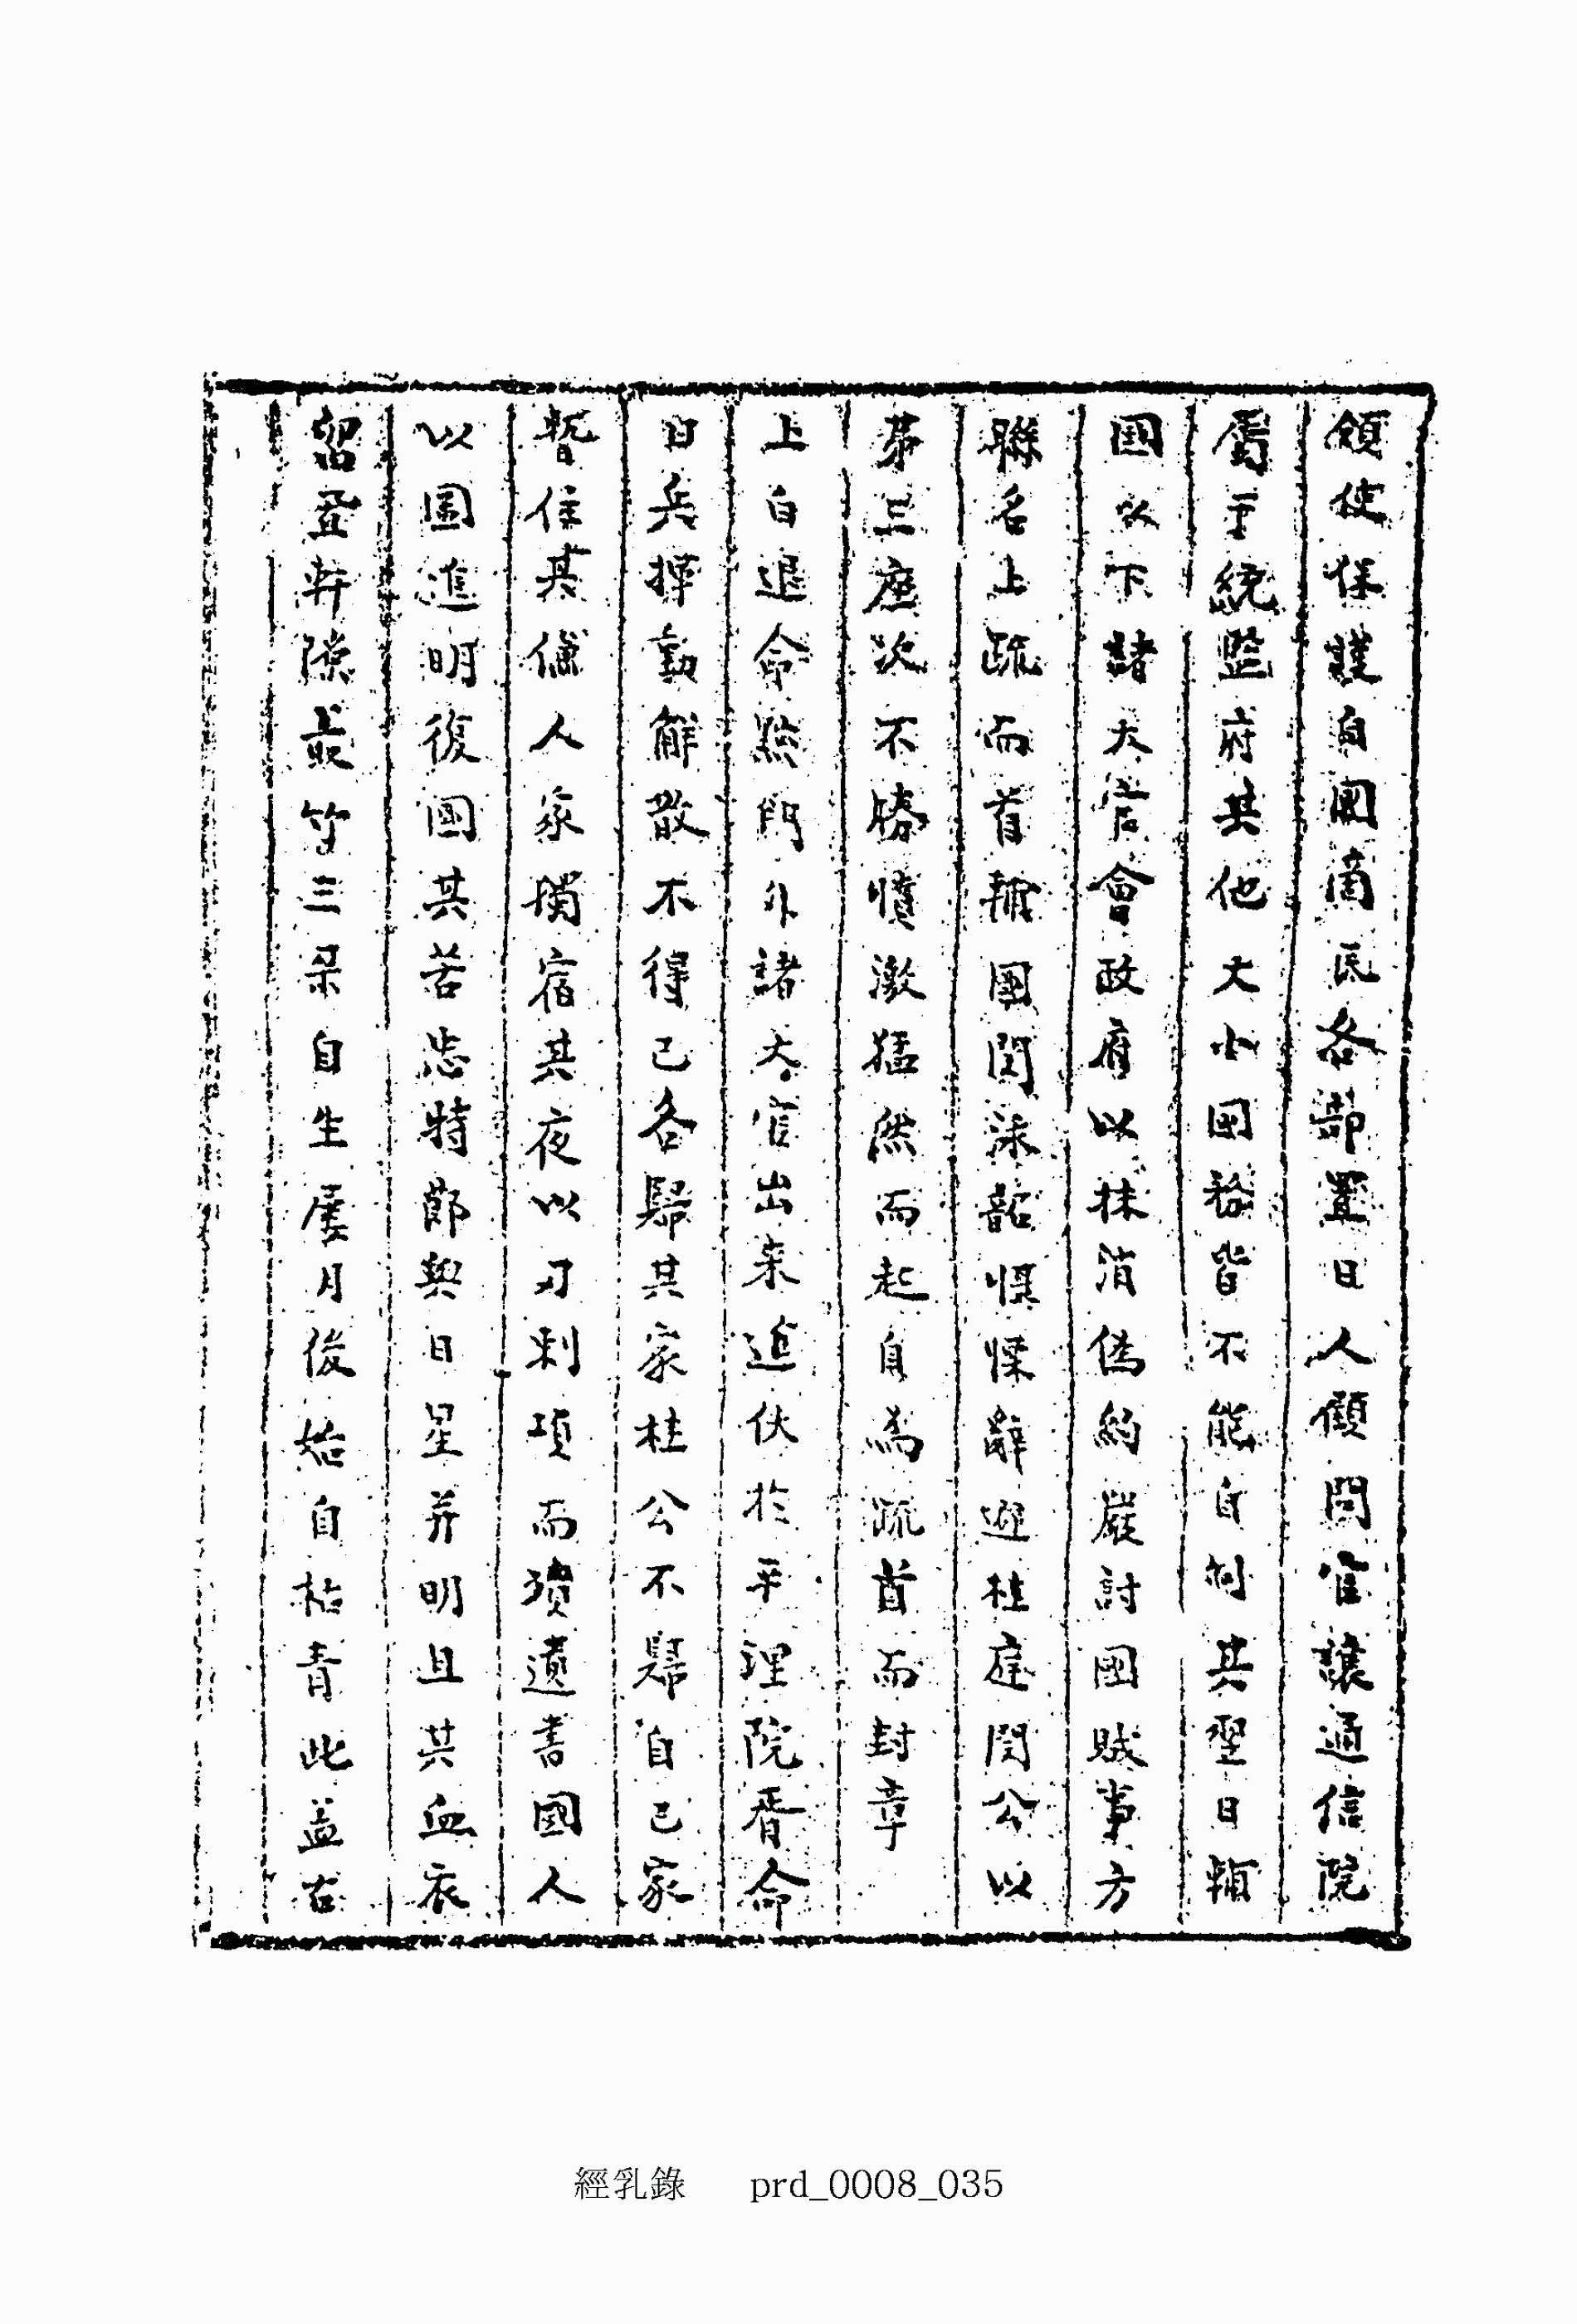 領使保護自國商民各部置日人顧問官讓通信院
屬于統監府其他大小國務皆不能自制共聖日輔
國以下諸大官會政府以抹消僞約嚴討國賊事方
聯名上疏而首輔國閔泳韶恨慄辭避桂庭閔公以
第三座次不勝憤激猛然而起自爲疏首而封章
上自退命點門外諸大官出来進伏於平理院胥命
日兵揮劒解散不得已各歸其家桂公不歸自己家
暫住其傔人家獨宿其夜以刃刺項而殞遺書國人
以圖進明復國其苦忠特節與日星并明且其血衣
留置奔隙最竹三朶自生屢月後始自枯青此益古
經乳錄 prd_0008_035